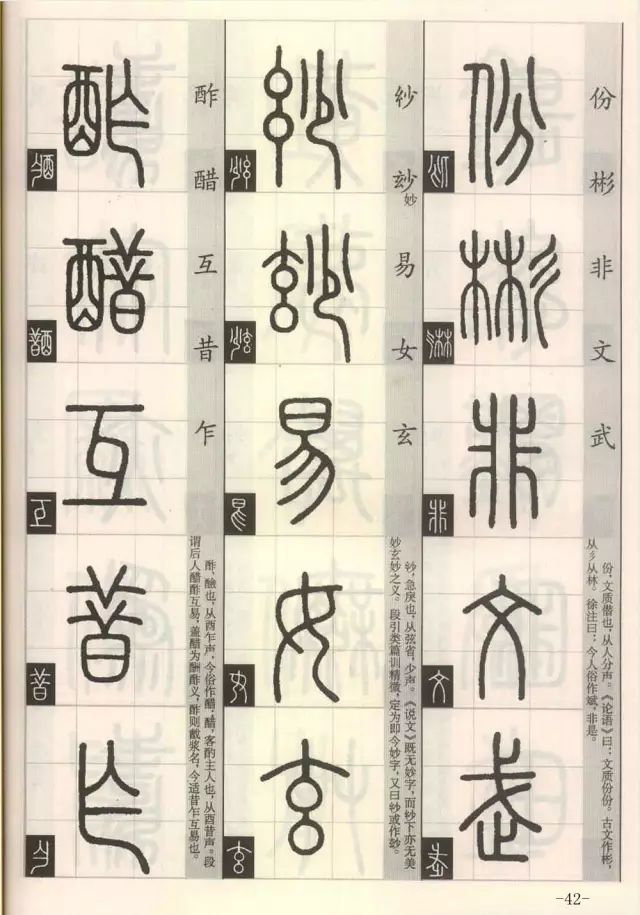 份彬非文武
份，文质僣也，从人分声。《论语》曰：文质份份。古文作彬，
从彡从林。徐注曰：今人俗作斌，非是。
紗玅妙易女玄
急戾也，从弦省，少声。《说文》既无妙字，而紗下亦无美
妙玄妙之义。段引类篇训精微，定为即今妙字，又曰紗或作玅。
酢醋互昔乍
酢，醶也，从酉乍声，今俗作醋。醋，客酌主人也，从酉昔声。段
谓后人醋酢互易，盖醋为酬酢义，酢则酨浆名，今适昔乍互易也。
-42-